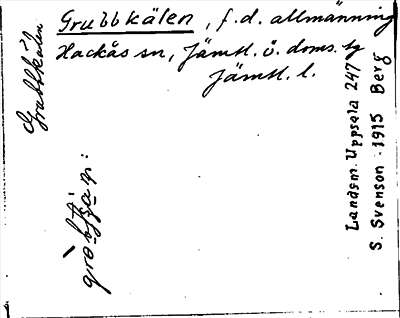 Grubbkälen, f.d. allmänning
Hackås sn, Jämtl. ö. doms. tg
Jämtl. l.
Grubbkälen
Landsm. Uppsala 247
S. Svenson 1915 Berg